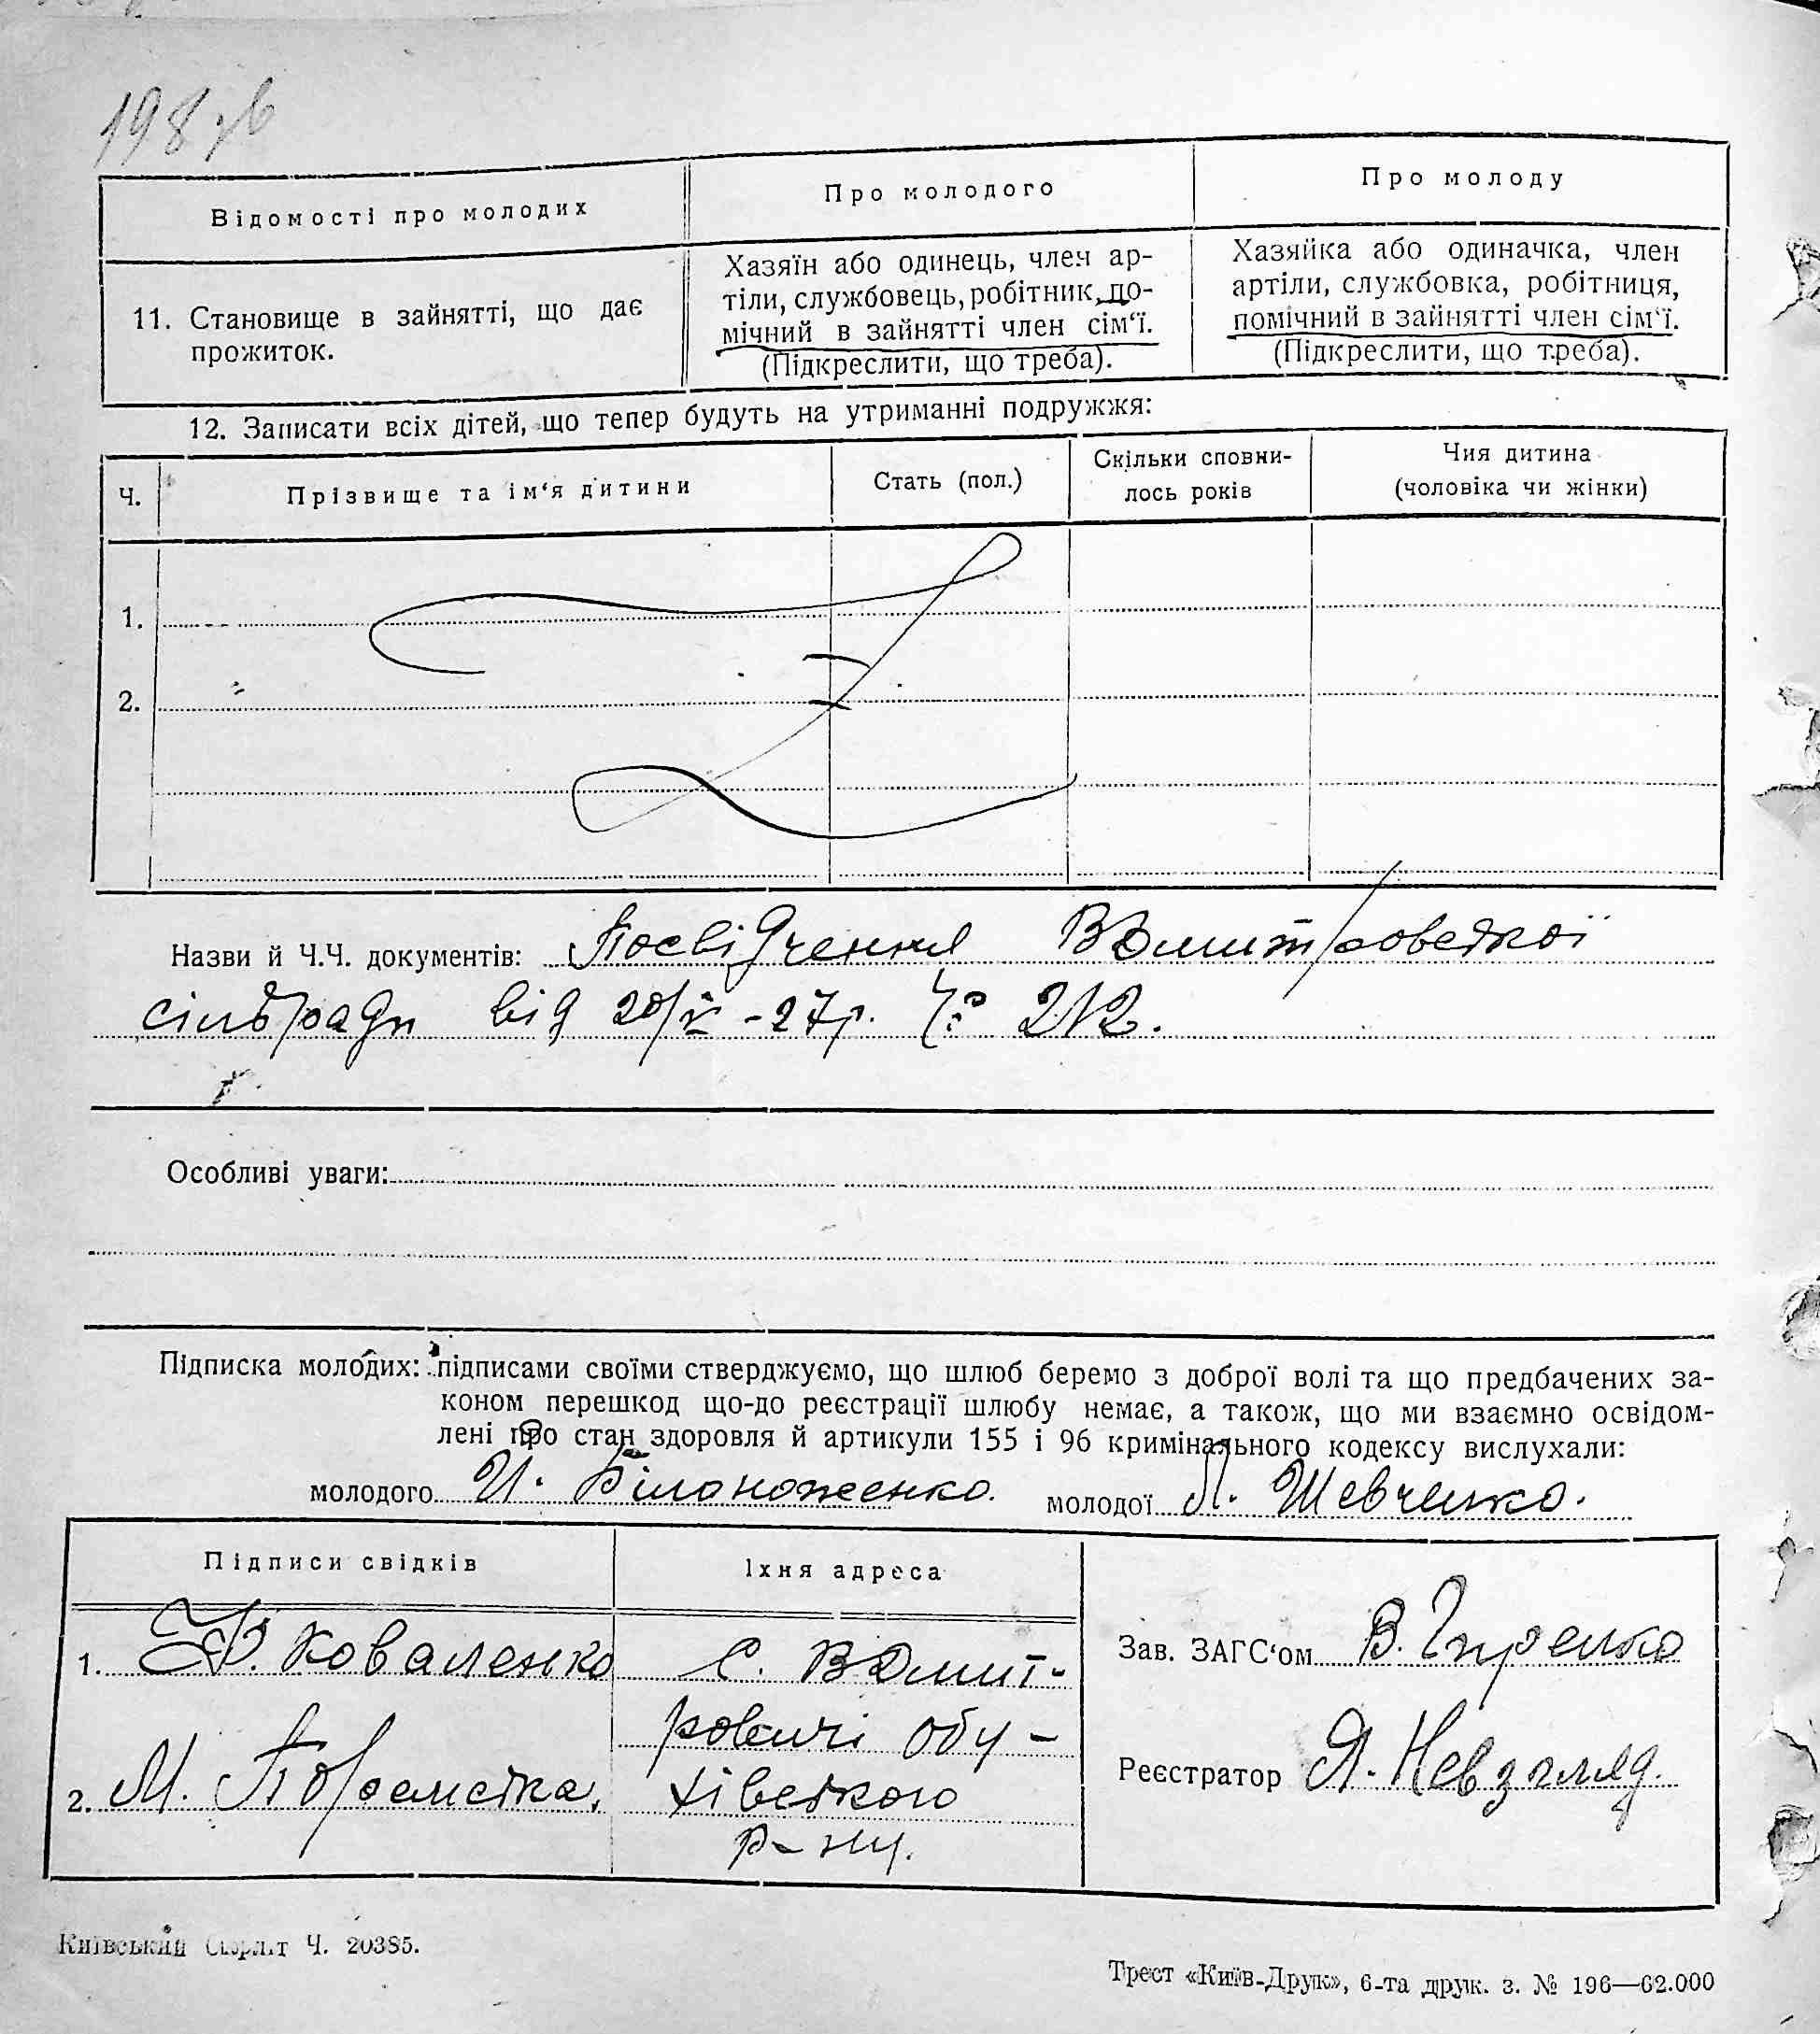 198 зв
Відомості про молодих
Про молодого
Про молоду
11. Становище в зайнятті, що дає
прожиток.
Хазяїн або одинець, член ар-
тіли, службовець, робітник, по-
мічний в зайнятті член сім‘ї.
(Підкреслити, що треба).
Хазяйка або одиначка, член
артіли, службовка, робітниця,
помічний в зайнятті член сім‘ї.
(Підкреслити, що треба).
12. Записати всіх дітей, що тепер будуть на утриманні подружжя:
Ч.
Прізвище та ім‘я дитини
Стать (пол.)
Скільки сповни-
лось років
Чия дитина
(чоловіка чи жінки)
1.
2.
Назви й Ч.Ч. документів: Посвідчення ВДмитровської
сільради від 20/X - 27 р. Ч: 212.
Особливі уваги:
Підписка молодих: підписами своїми стверджуємо, що шлюб беремо з доброї волі та що предбачених за-
коном перешкод що-до реєстрації шлюбу немає, а також, що ми взаємно освідом-
лені про стан здоровля й артикули 155 і 96 кримінального кодексу вислухали:
молодого И. Білоноженко. молодої Л. Шевченко.
Підписи свідків
Їхня адреса
1. Коваленко
С. ВДмит-
ровичі Обу-
хівського
р-ну.
2. М. Торемська.
Зав. ЗАГС‘ом В. Гиренко
Реєстратор Я. Невзгляд.
Київський Окрліт Ч. 20385.
Трест «Київ-Друк», 6-та друк. з. № 196—62.000